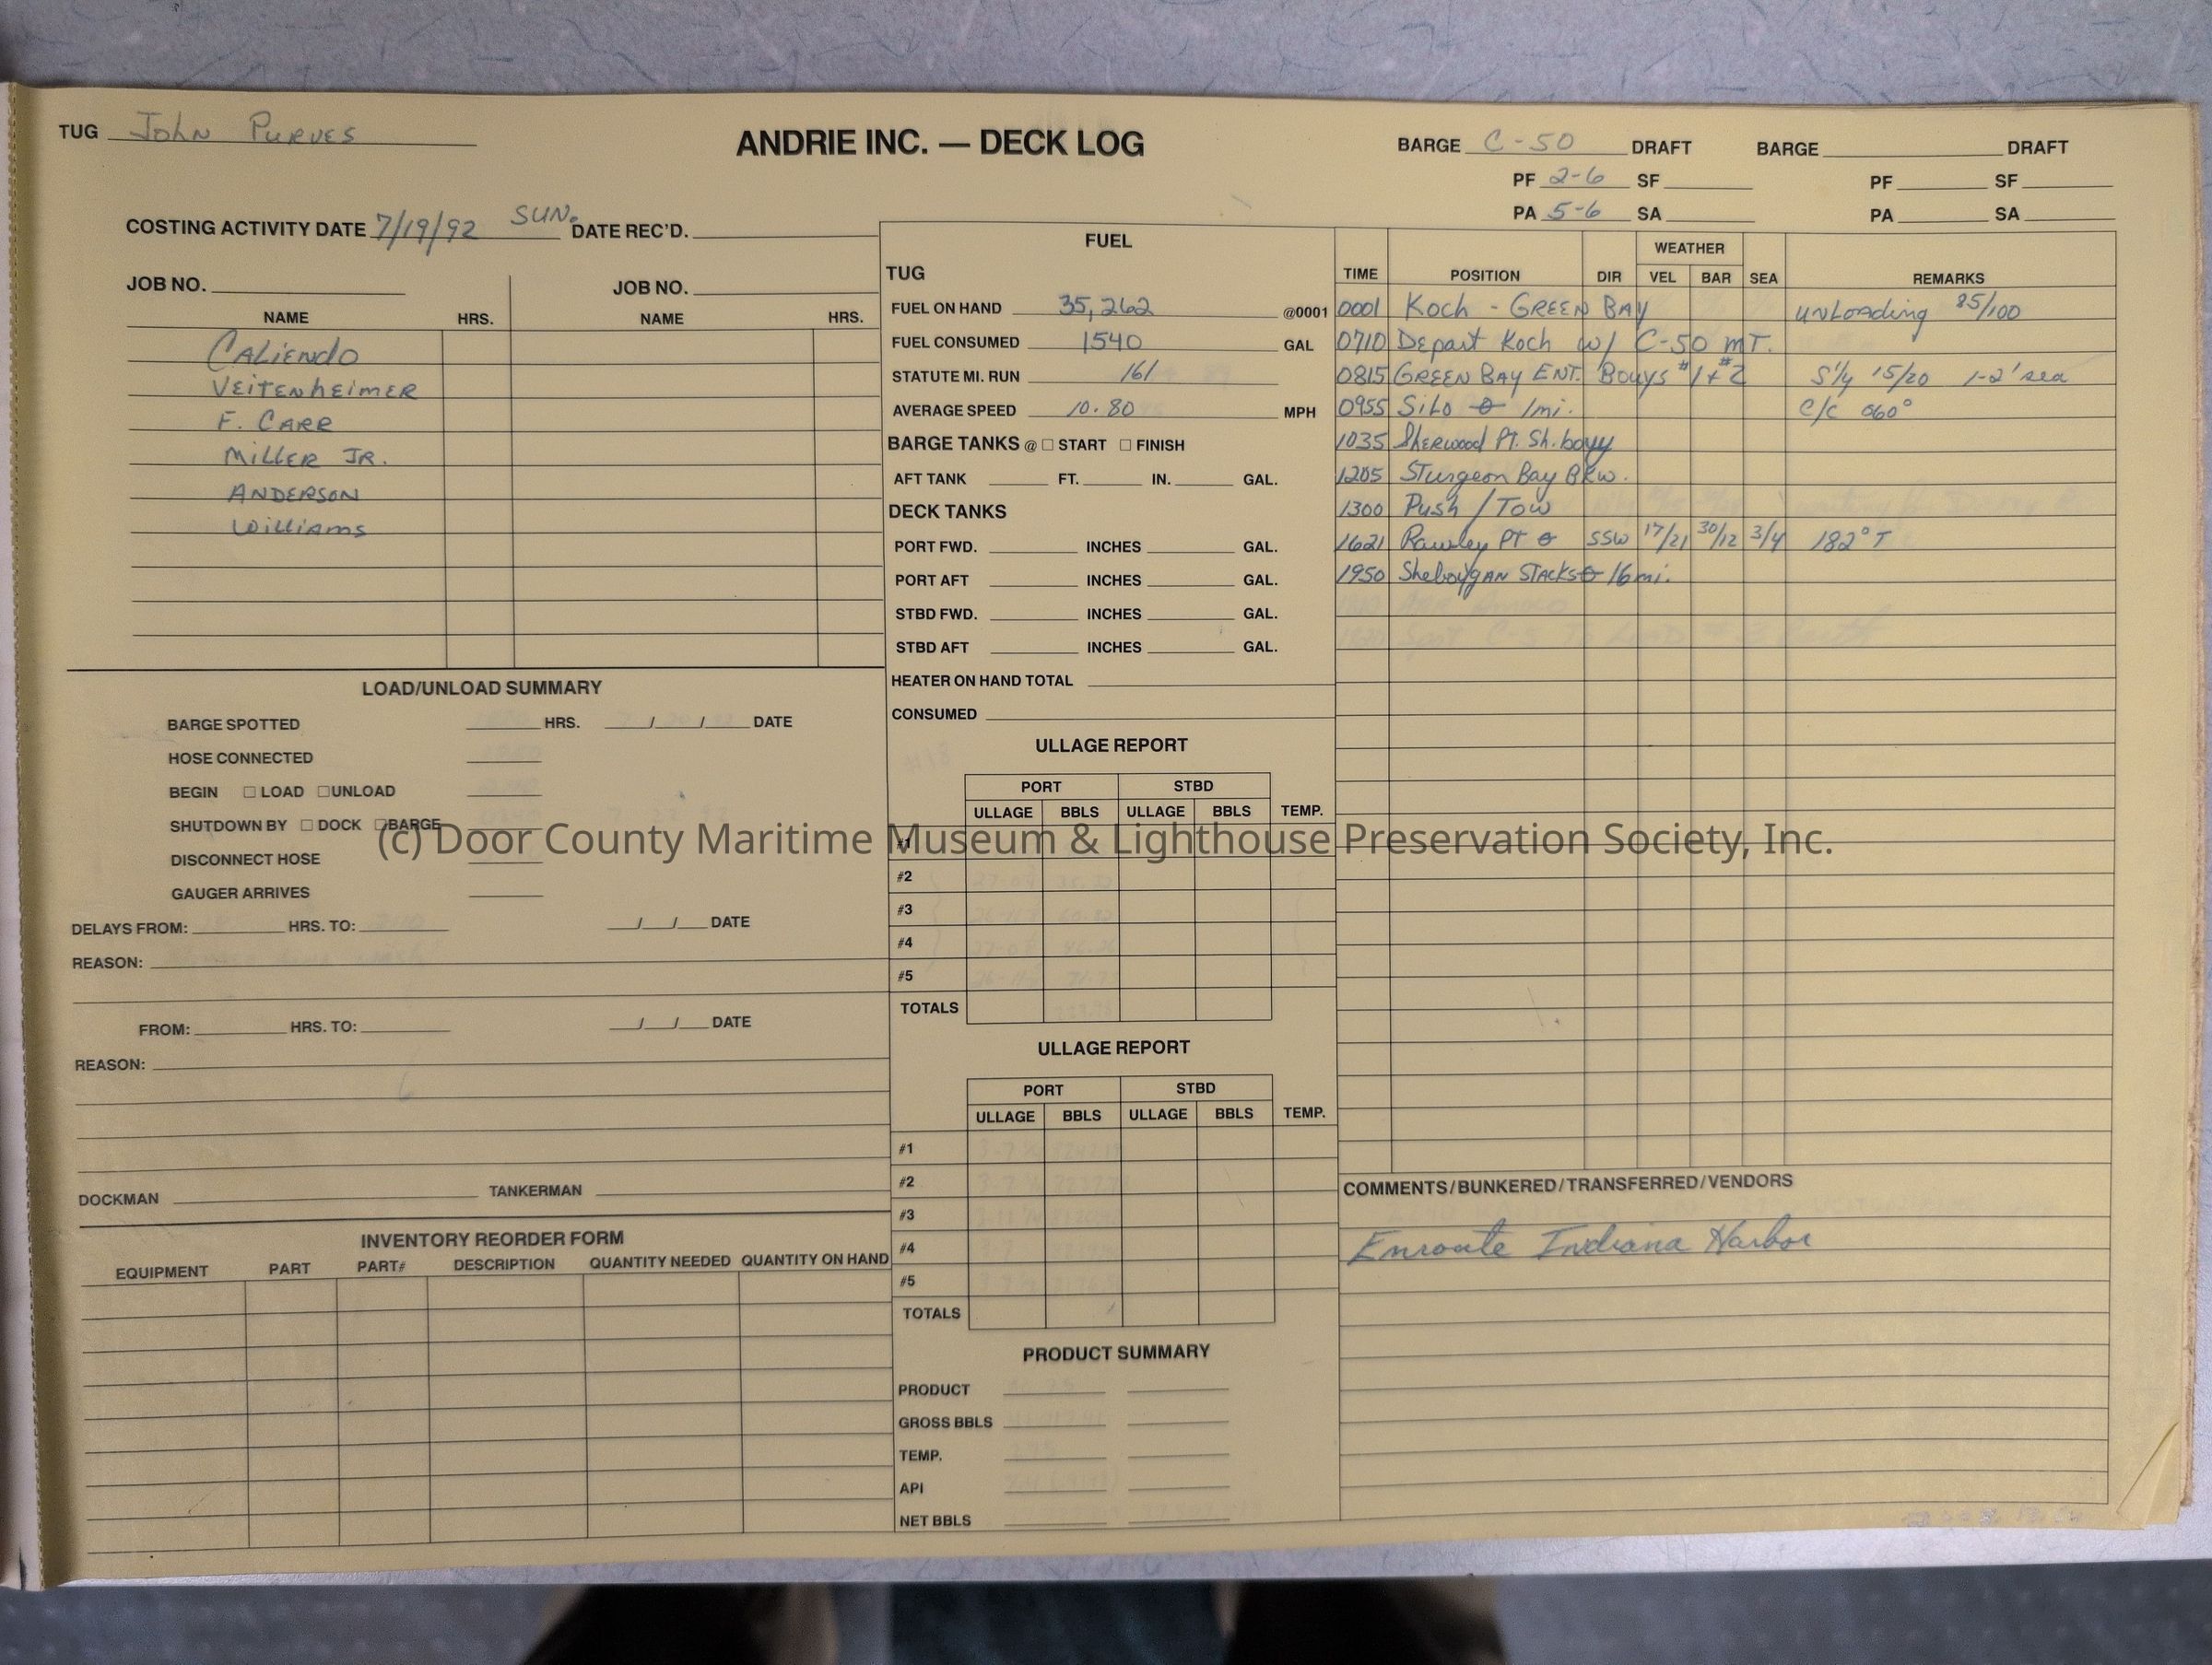 TUG John Purves
ANDRIE INC. — DECK LOG
BARGE C-50 DRAFT BARGE DRAFT
PF 2-6 SF PF SF
PA 5-6 SA PA SA
COSTING ACTIVITY DATE 7/19/92 SUN. DATE REC'D.
JOB NO. JOB NO.
NAME HRS. NAME HRS.
CALIENDO
VEITENHEIMER
F. CARR
MILLER JR.
ANDERSON
Williams
LOAD/UNLOAD SUMMARY
BARGE SPOTTED HRS. / / DATE
HOSE CONNECTED
BEGIN ☐ LOAD ☐ UNLOAD
SHUTDOWN BY ☐ DOCK ☐ BARGE
DISCONNECT HOSE
GAUGER ARRIVES
DELAYS FROM: HRS. TO: / / DATE
REASON:
FROM: HRS. TO: / / DATE
REASON:
DOCKMAN TANKERMAN
INVENTORY REORDER FORM
EQUIPMENT PART PART# DESCRIPTION QUANTITY NEEDED QUANTITY ON HAND
FUEL
TUG
FUEL ON HAND 35,262 @0001
FUEL CONSUMED 1540 GAL
STATUTE MI. RUN 161
AVERAGE SPEED 10.80 MPH
BARGE TANKS @ ☐ START ☐ FINISH
AFT TANK FT. IN. GAL.
DECK TANKS
PORT FWD. INCHES GAL.
PORT AFT INCHES GAL.
STBD FWD. INCHES GAL.
STBD AFT INCHES GAL.
HEATER ON HAND TOTAL
CONSUMED
ULLAGE REPORT
PORT STBD
ULLAGE BBLS ULLAGE BBLS TEMP.
#1
#2
#3
#4
#5
TOTALS
ULLAGE REPORT
PORT STBD
ULLAGE BBLS ULLAGE BBLS TEMP.
#1
#2
#3
#4
#5
TOTALS
PRODUCT SUMMARY
PRODUCT
GROSS BBLS
TEMP.
API
NET BBLS
WEATHER
TIME POSITION DIR VEL BAR SEA REMARKS
0001 Koch - GREEN BAY unLoading 85/100
0710 Depart Koch w/ C-50 mT.
0815 GREEN BAY ENT. Bouys #1 + #2 S'ly 15/20 1-2' sea
0955 Silo 1mi. c/c 060°
1035 Sherwood Pt. Sh. bouy
1205 Sturgeon Bay Bkw.
1300 Push / Tow
1621 Rawley PT SSW 17/21 30/12 3/4 182° T
1950 Sheboygan STACKS 16mi.
COMMENTS/BUNKERED/TRANSFERRED/VENDORS
Enroute Indiana Harbor
(c) Door County Maritime Museum & Lighthouse Preservation Society, Inc.